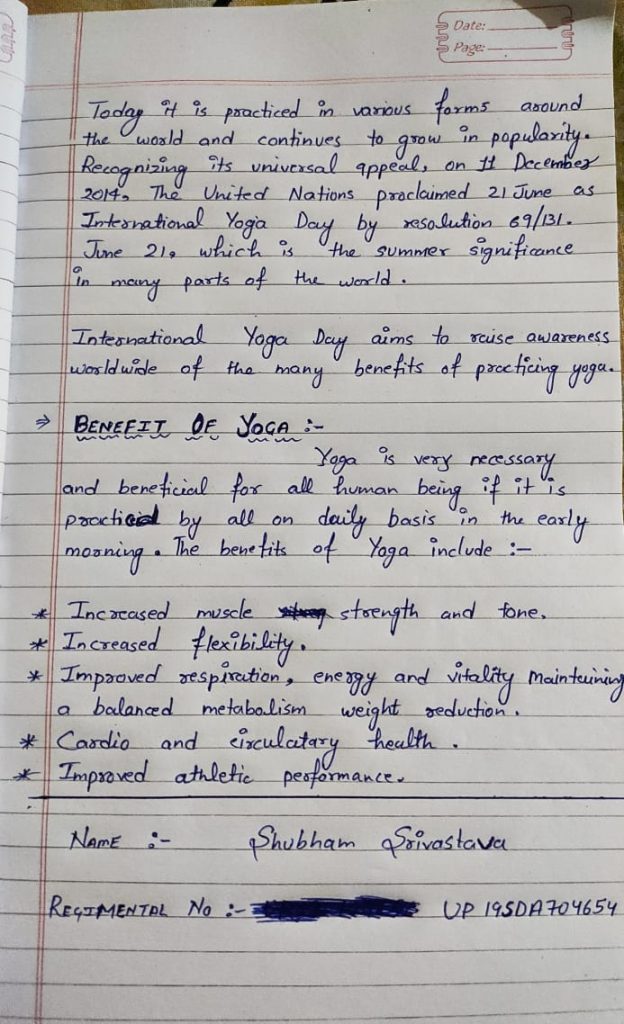 Date:
Page:
Today it is practiced in various forms around
the world and continues to grow in popularity.
Recognizing its universal appeal, on 11 December
2014, The United Nations proclaimed 21 June as
International Yoga Day by resolution 69/131.
June 21, which is the summer significance
in many parts of the world.
International Yoga Day aims to raise awareness
worldwide of the many benefits of practicing yoga.
⇒ BENEFIT OF YOGA :-
Yoga is very necessary
and beneficial for all human being if it is
practiced by all on daily basis in the early
morning. The benefits of Yoga include :-
* Increased muscle strength and tone.
* Increased flexibility.
* Improved respiration, energy and vitality Maintaining
a balanced metabolism weight reduction.
* Cardio and circulatary health.
* Improved athletic performance.
NAME :- Shubham Srivastava
REGIMENTAL NO :- UP19SDA704654